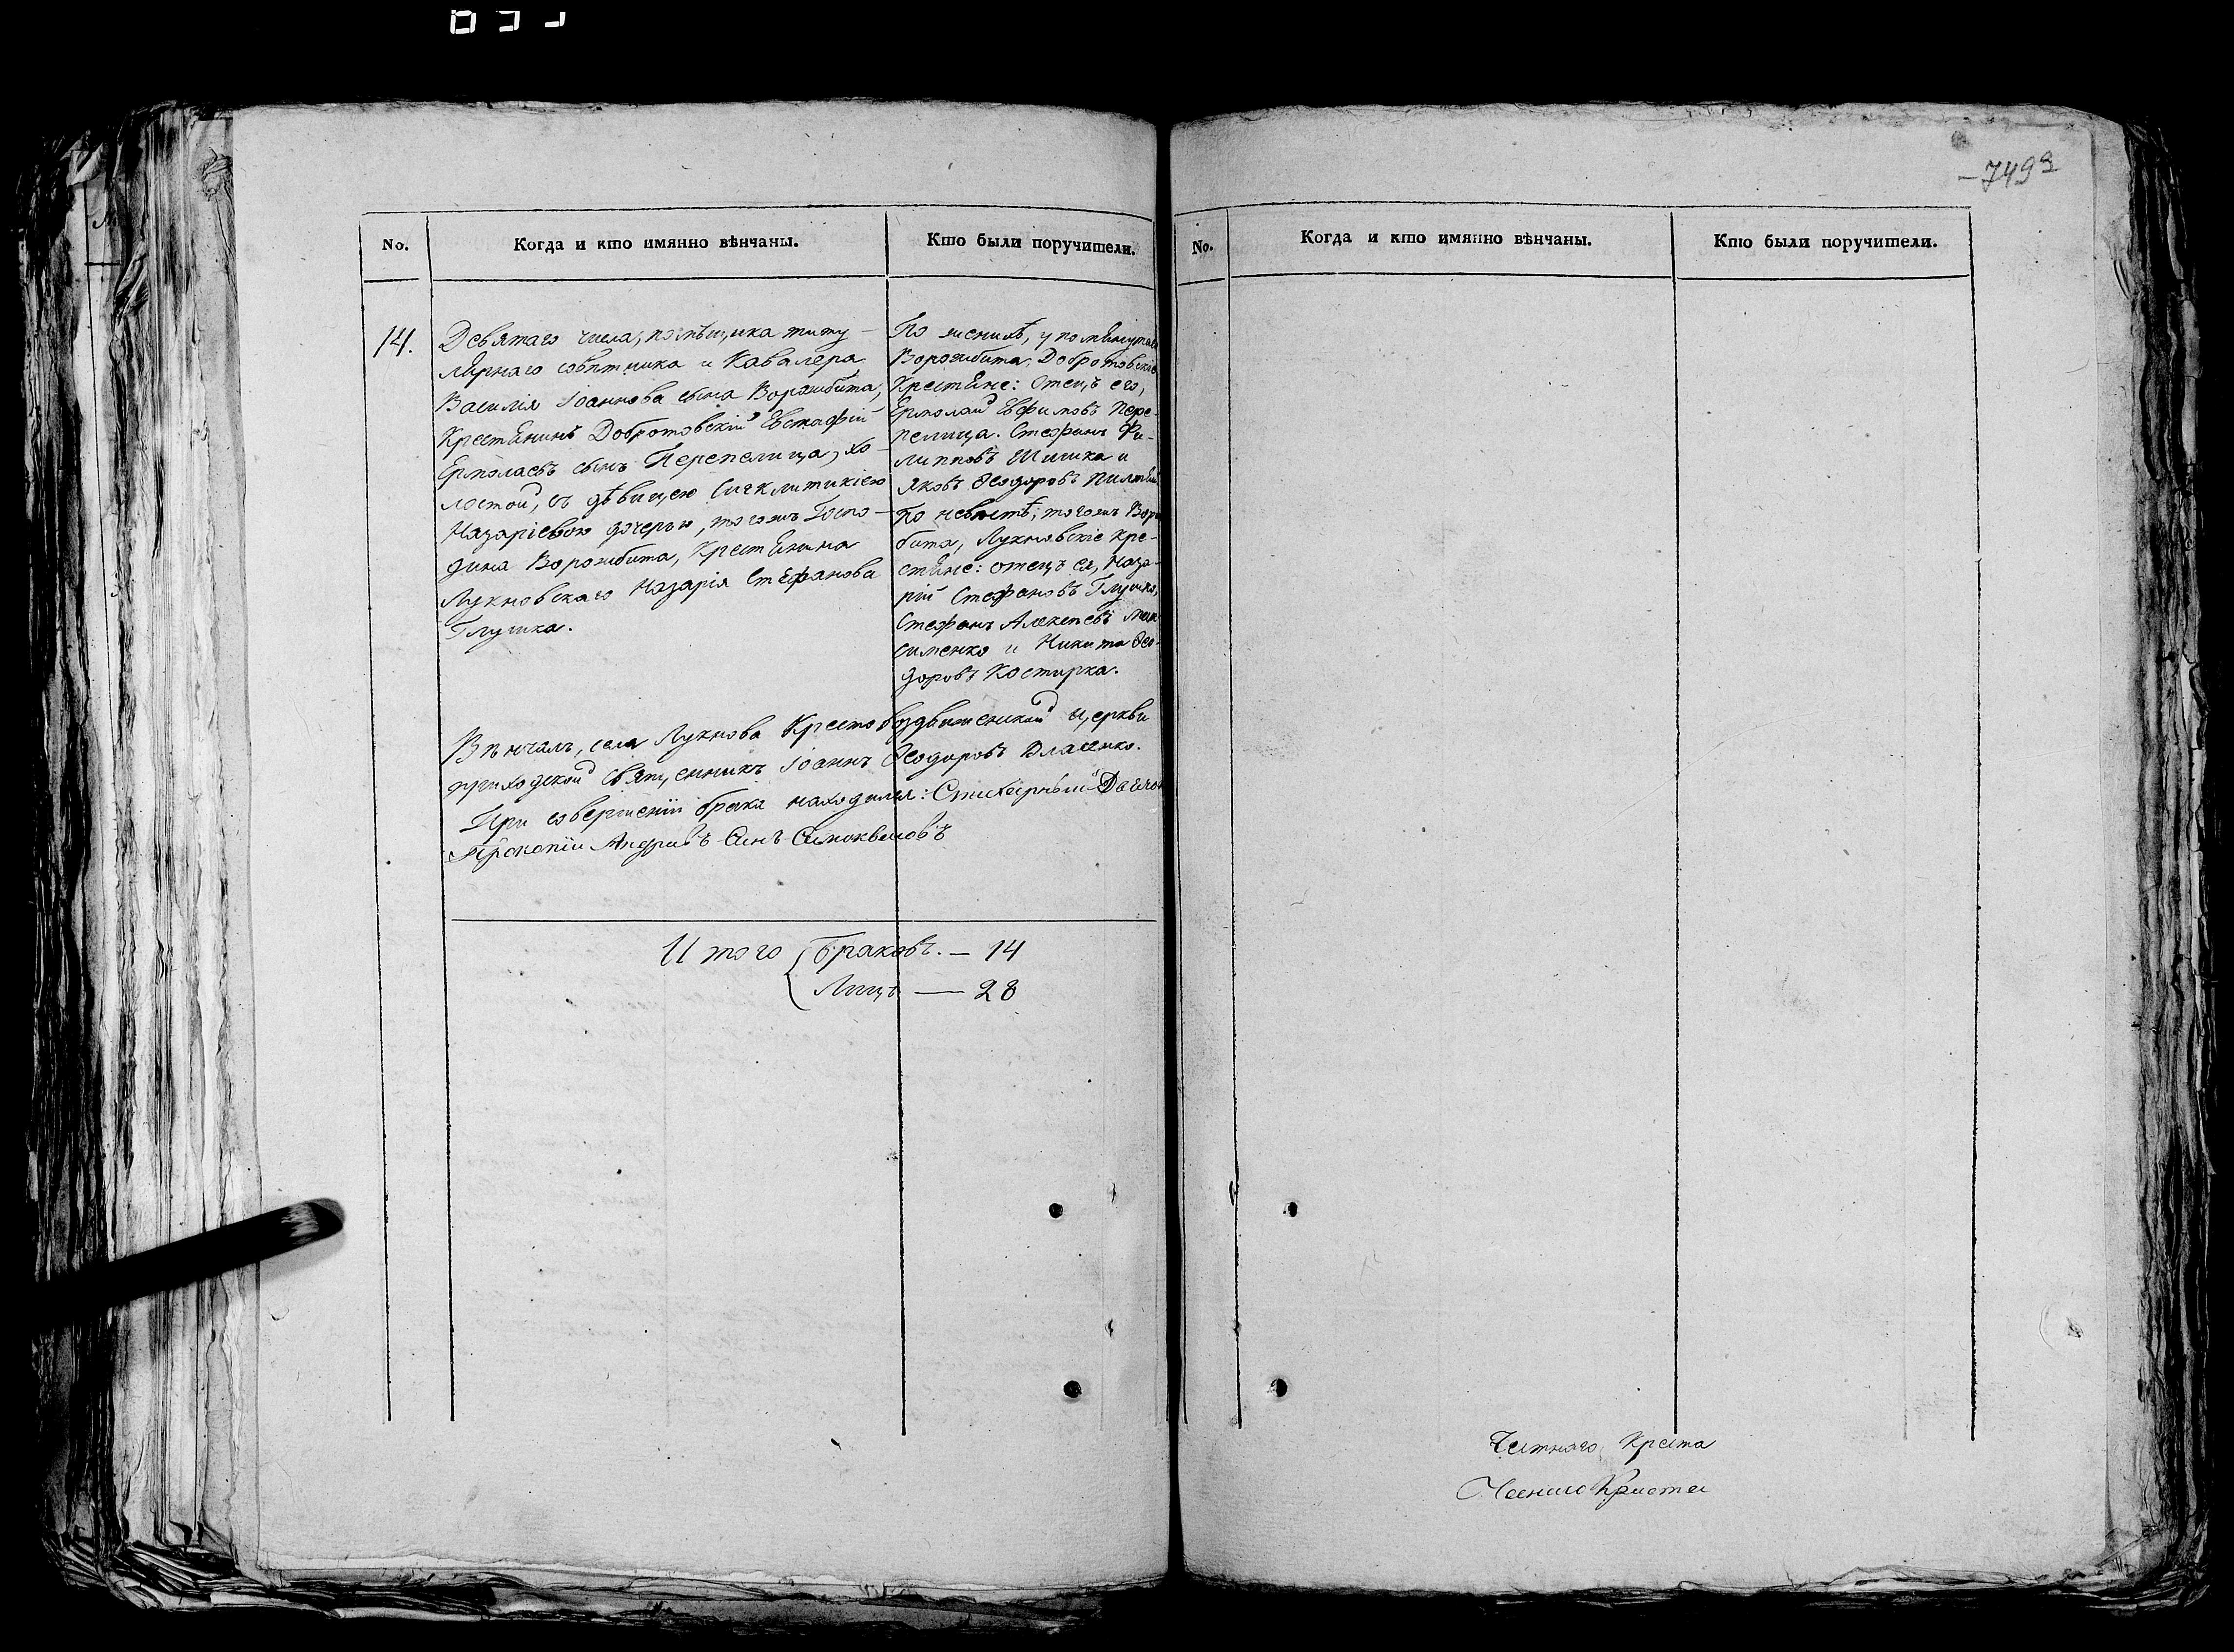 No.
Когда и кто имянно вѣнчаны.
Кто были поручители.
14.
Девятаго числа, помѣщика титу-
лярнаго совѣтника и Кавалера
Василія Іоаннова сына Ворожбита,
Крестянинъ Добротовскій Евстафій
Ермолаевъ сынъ Перепелица, хо-
лостой, съ дѣвицею Сигклитикіею
Назаріевою дочерью, тогожъ Госпо-
дина Ворожбита, Крестянина
Лукновскаго Назарія Стефанова
Глушка.
По женихѣ, упомянутаго
Ворожбита, Добротовскіе
Крестяне: Отецъ его,
Ермолай Евфимовъ Пере-
пелица. Стефанъ Фи-
липповъ Шишка и
Яковъ Ѳеодоровъ
По невѣстѣ, тогожъ
бита, Лукновскіе Кре-
стяне: отецъ ея, Наза-
рій Стефановъ Глушка,
Стефанъ Алексѣевъ Мак
сименко и Никита Ѳео-
доровъ Костирка.
Вѣнчалъ, села Лукнова Крестовоздвиженской Церкви
приходской Священникъ Іоаннъ Ѳеодоровъ Власенко.
При совершеніи брака находился: Стихарный Дьячок
Прокопій Андріевъ Синъ Самоквасовъ
Итого
Браковъ. — 14
Лицъ — 28
-7493
No.
Когда и кто имянно вѣнчаны.
Кто были поручители.
Честнаго Креста
Чеснаго Креста